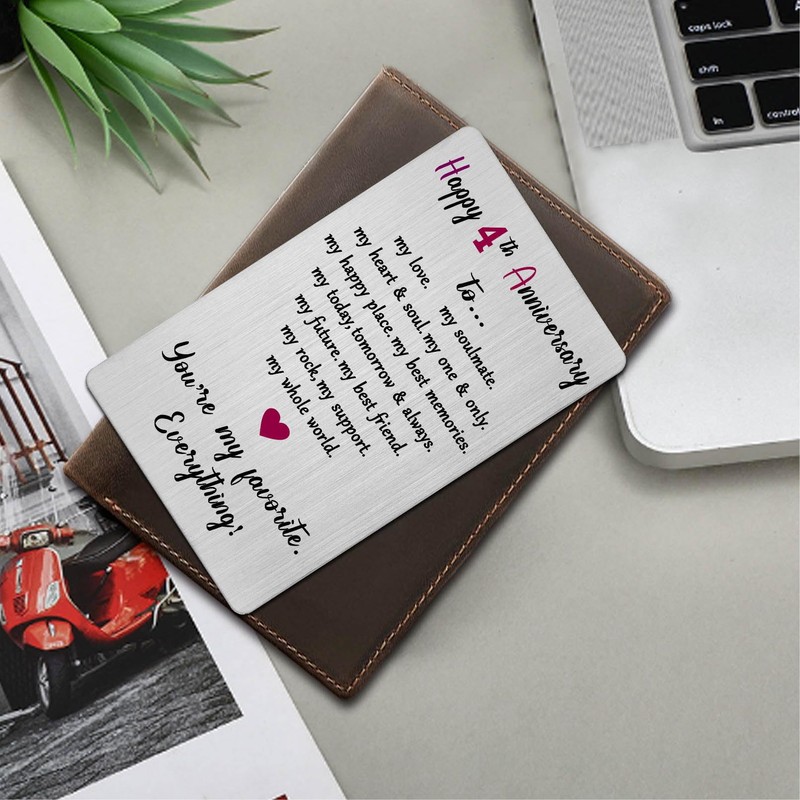 Happy 4th Anniversary
to...
my love. my soulmate.
my heart & soul. my one & only.
my happy place. my best memories.
my today, tomorrow & always.
my future. my best friend.
my rock, my support.
my whole world.
You're my favorite.
Everything!
caps lock
shift
fn
control